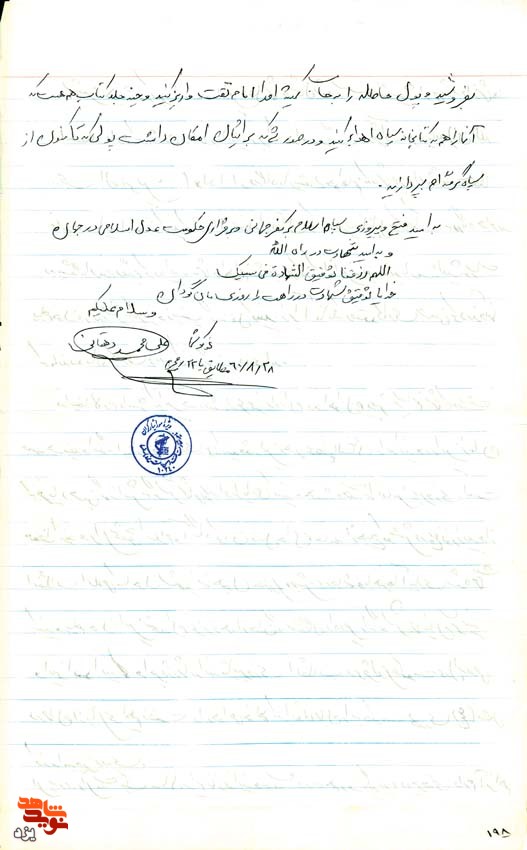 بفروشید و پول حاصله را به حساب کمیته امداد امام تقت واریز کنید و چند جلد کتاب هم هست که
آنرا هم به کتابخانه سپاه اهداء کنید و در صورتی که برایتان امکان داشت پولی که تاکنون از
سپاه گرفته‌ام بپردازید.
به امید فتح و پیروزی سپاه اسلام بر کفر جهانی و برقراری حکومت عدل اسلامی در جهان
و به امید شهادت در راه الله
اللهم ارزقنا توفیق الشهادة فی سبیلک
خدایا توفیق شهادت در راهت را روزی مان گردان
والسلام علیکم
علی محمد دهقانی
۶۰/۸/۲۸ مطابق با ۲۲ محرم
شاهد
نوید
یزد
۱۹۸